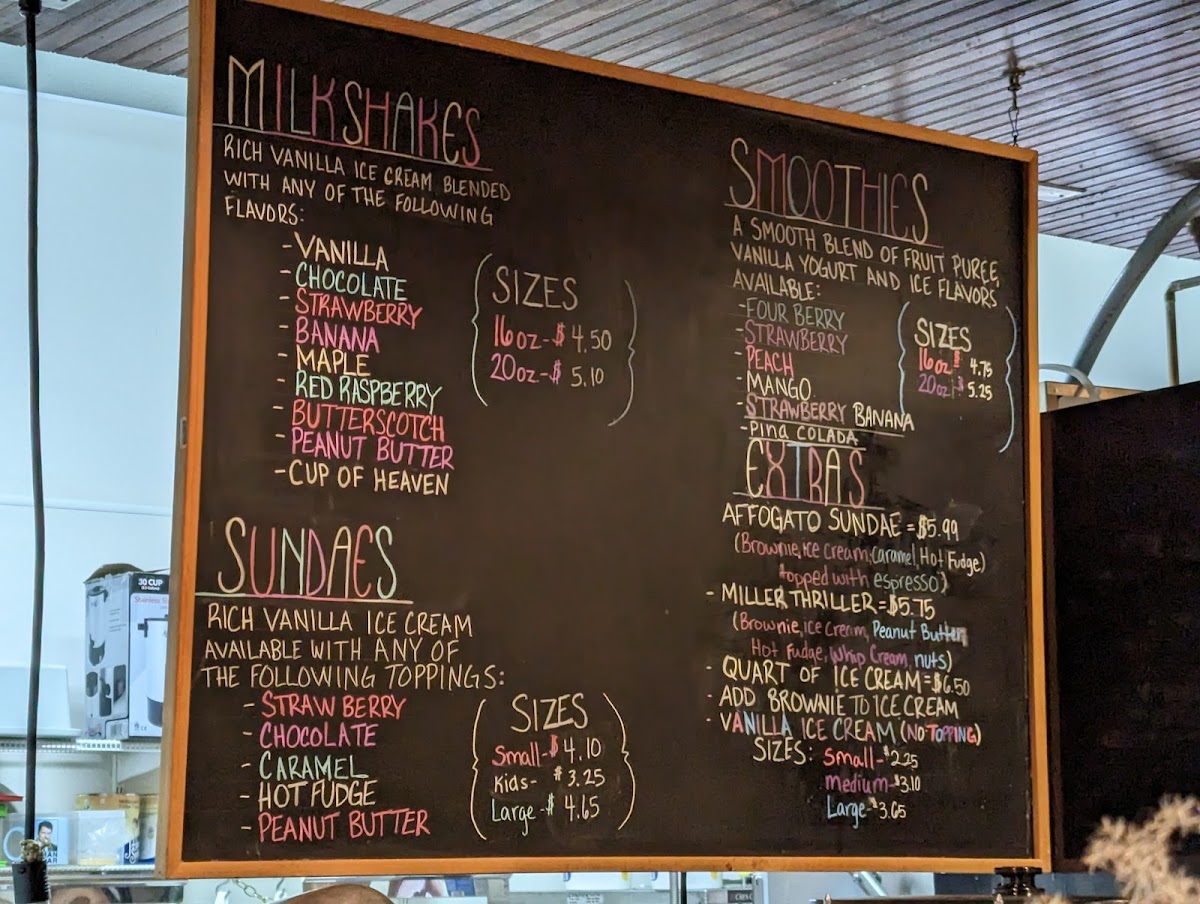 MILKSHAKES
RICH VANILLA ICE CREAM BLENDED
WITH ANY OF THE FOLLOWING
FLAVORS:
-VANILLA
-CHOCOLATE
-STRAWBERRY
-BANANA
-MAPLE
-RED RASPBERRY
-BUTTERSCOTCH
-PEANUT BUTTER
-CUP OF HEAVEN
SIZES
16oz-$ 4.50
20oz-$ 5.10
SUNDAES
RICH VANILLA ICE CREAM
AVAILABLE WITH ANY OF
THE FOLLOWING TOPPINGS:
-STRAWBERRY
-CHOCOLATE
-CARAMEL
-HOT FUDGE
-PEANUT BUTTER
SIZES
Small-$ 4.10
Kids- $3.25
Large-$ 4.65
SMOOTHIES
A SMOOTH BLEND OF FRUIT PUREE,
VANILLA YOGURT AND ICE FLAVORS
AVAILABLE:
-FOUR BERRY
-STRAWBERRY
-PEACH
-MANGO
-STRAWBERRY BANANA
-PINA COLADA
SIZES
16oz-$ 4.75
20oz-$ 5.25
EXTRAS
AFFOGATO SUNDAE = $5.99
(Brownie, ice cream, caramel, Hot Fudge)
topped with espresso)
- MILLER THRILLER = $5.75
(Brownie, ice Cream, Peanut Butter,
Hot Fudge, Whip Cream, nuts)
- QUART OF ICE CREAM = $6.50
- ADD BROWNIE TO ICE CREAM
- VANILLA ICE CREAM (NO TOPPING)
SIZES: Small-$2.25
medium-$3.10
Large-$3.65
30 CUP